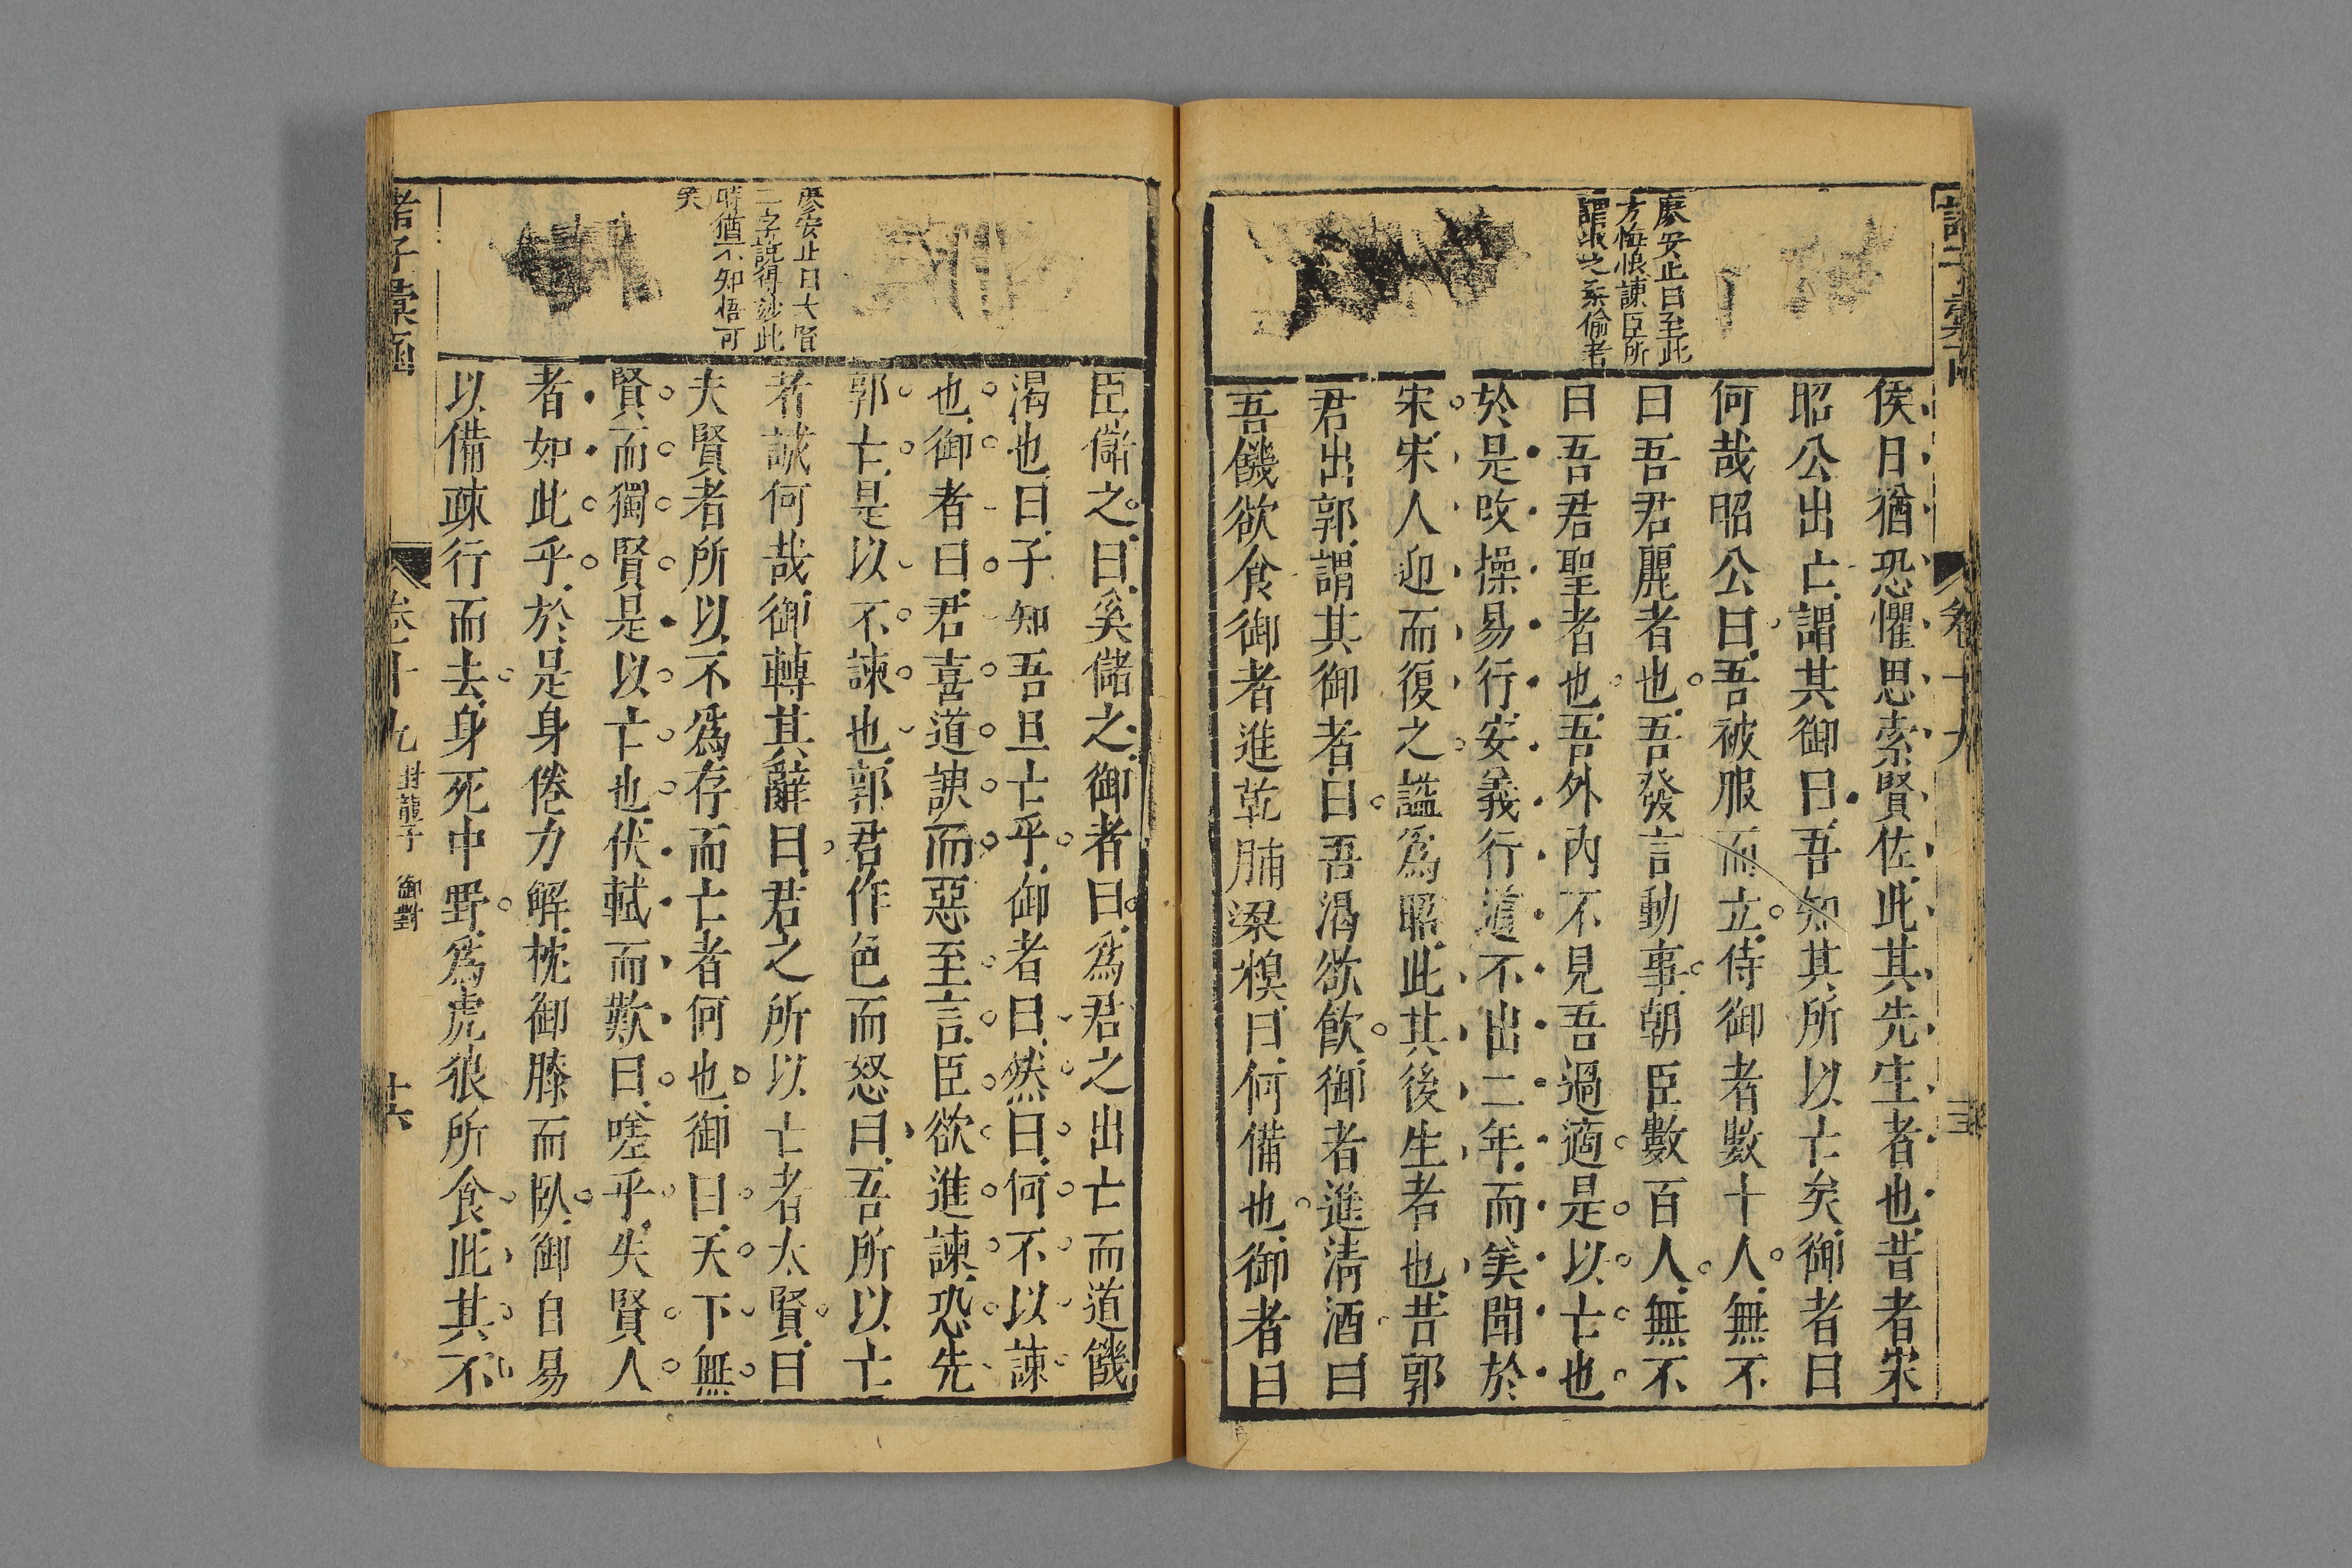 廖安止曰至此
方悔恨諫臣所
謂
侯日猶恐懼思索賢佐此其先生者也昔者宋
昭公出亡謂其御曰吾知其所以亡矣御者曰
何哉昭公曰吾被服而立侍御者數十人無不
曰吾君麗者也吾發言動事朝臣數百人無不
曰吾君聖者也吾外內不見吾過適是以亡也
於是改操易行安義行道不出二年而美聞於
宋宋人迎而復之謚爲昭此其後生者也昔郭
君出郭謂其御者曰吾渴欲飲御者進清酒曰
吾饑欲食御者進乾脯粱糗曰何備也御者曰
廖安止曰大賢
二字說得妙此
時猶不知悟可
笑
臣儲之曰奚儲之御者曰爲君之出亡而道饑
渴也曰子知吾且亡乎御者曰然曰何不以諫
也御者曰君喜道諛而惡至言臣欲進諫恐先
郭亡是以不諫也郭君作色而怒曰吾所以亡
者誠何哉御轉其辭曰君之所以亡者太賢曰
夫賢者所以不爲存而亡者何也御曰天下無
賢而獨賢是以亡也伏軾而歎曰嗟乎失賢人
者如此乎於是身倦力解枕御膝而臥御自易
以備疎行而去身死中野爲虎狼所食此其不
諸子彙函
卷十九
封龍子 御對
十六